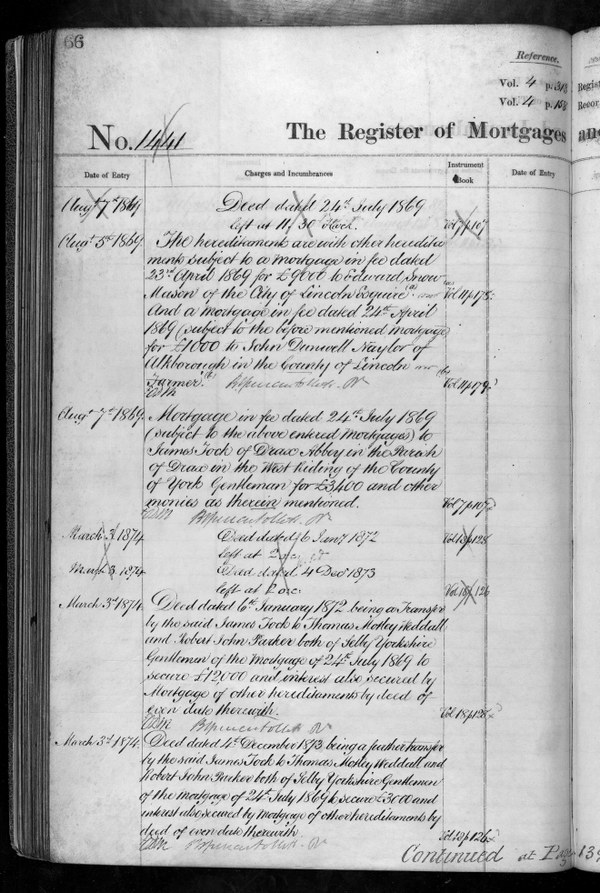 66
Reference.
Vol. 4 p.
Vol. 4 p.
No. 1441 The Register of Mortgages and
Date of Entry Charges and Incumbrances Instrument Book Date of Entry
Augt 7th 1869 Deed dated 24th July 1869
left at 11.30 o'clock. Vol 7 p 107
Augt 5th 1869. The hereditaments are with other heredita
ments subject to a mortgage in fee dated
23rd April 1869 for £9000 to Edward Snow
Mason of the City of Lincoln Esquire (a) Vol 11 p 178
And a mortgage in fee dated 24th April
1869 (subject to the before mentioned mortgage
for £1000 to John Dunwell Naylor of
Alkborough in the County of Lincoln
Farmer. (b) Vol 11 p 179
Augt 7th 1869. Mortgage in fee dated 24th July 1869
(subject to the above entered mortgages) to
James Tock of Drax Abbey in the Parish
of Drax in the West Riding of the County
of York Gentleman for £3400 and other
monies as therein mentioned. Vol 7 p 107
March 3d 1874 Deed dated 6 Jany 1872 Vol 18 p 128
left at 2
March 3 1874 Deed dated 4 Decr 1873
left at 2 Vol 18 p 126
March 3rd 1874. Deed dated 6th January 1872 being a Transfer
by the said James Tock to Thomas Motley Weddall
and Robert John Parker both of Selby Yorkshire
Gentlemen of the Mortgage of 24th July 1869 to
secure £12,000 and interest also secured by
Mortgage of other hereditaments by deed of
even date therewith. Vol 18 p 128
March 3rd 1874. Deed dated 4th December 1873 being a further transfer
by the said James Tock to Thomas Motley Weddall and
Robert John Parker both of Selby Yorkshire Gentlemen
of the Mortgage of 24th July 1869 to secure £3000 and
interest also secured by Mortgage of other hereditaments by
deed of even date therewith Vol 18 p 126
Continued at Page 139